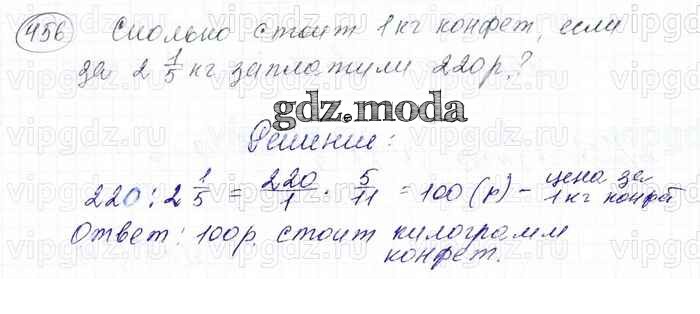 456 Сколько стоит 1 кг конфет, если
за 2 1/5 кг заплатили 220р.?
gdz.moda
Решение:
220 : 2 1/5 = 220/1 · 5/11 = 100 (р) - цена за
1 кг конфет
Ответ: 100р. стоит килограмм
конфет.